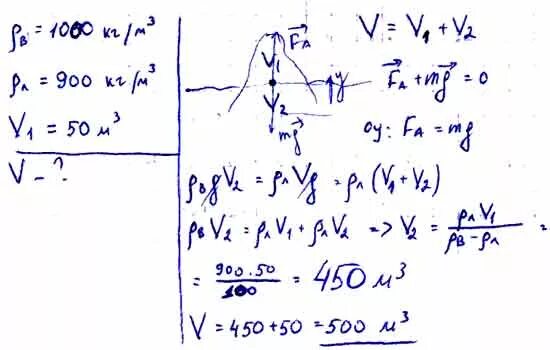 ρв = 1000 кг/м³
ρл = 900 кг/м³
V₁ = 50 м³
V – ?
F⃗A
V₁
y
V₂
mg⃗
V = V₁ + V₂
F⃗A + mg⃗ = 0
oy: FA = mg
ρв g V₂ = ρл V g = ρл (V₁ + V₂)
ρв V₂ = ρл V₁ + ρл V₂ => V₂ = ρл V₁ / (ρв – ρл) =
= 900 · 50 / 100 = 450 м³
V = 450 + 50 = 500 м³